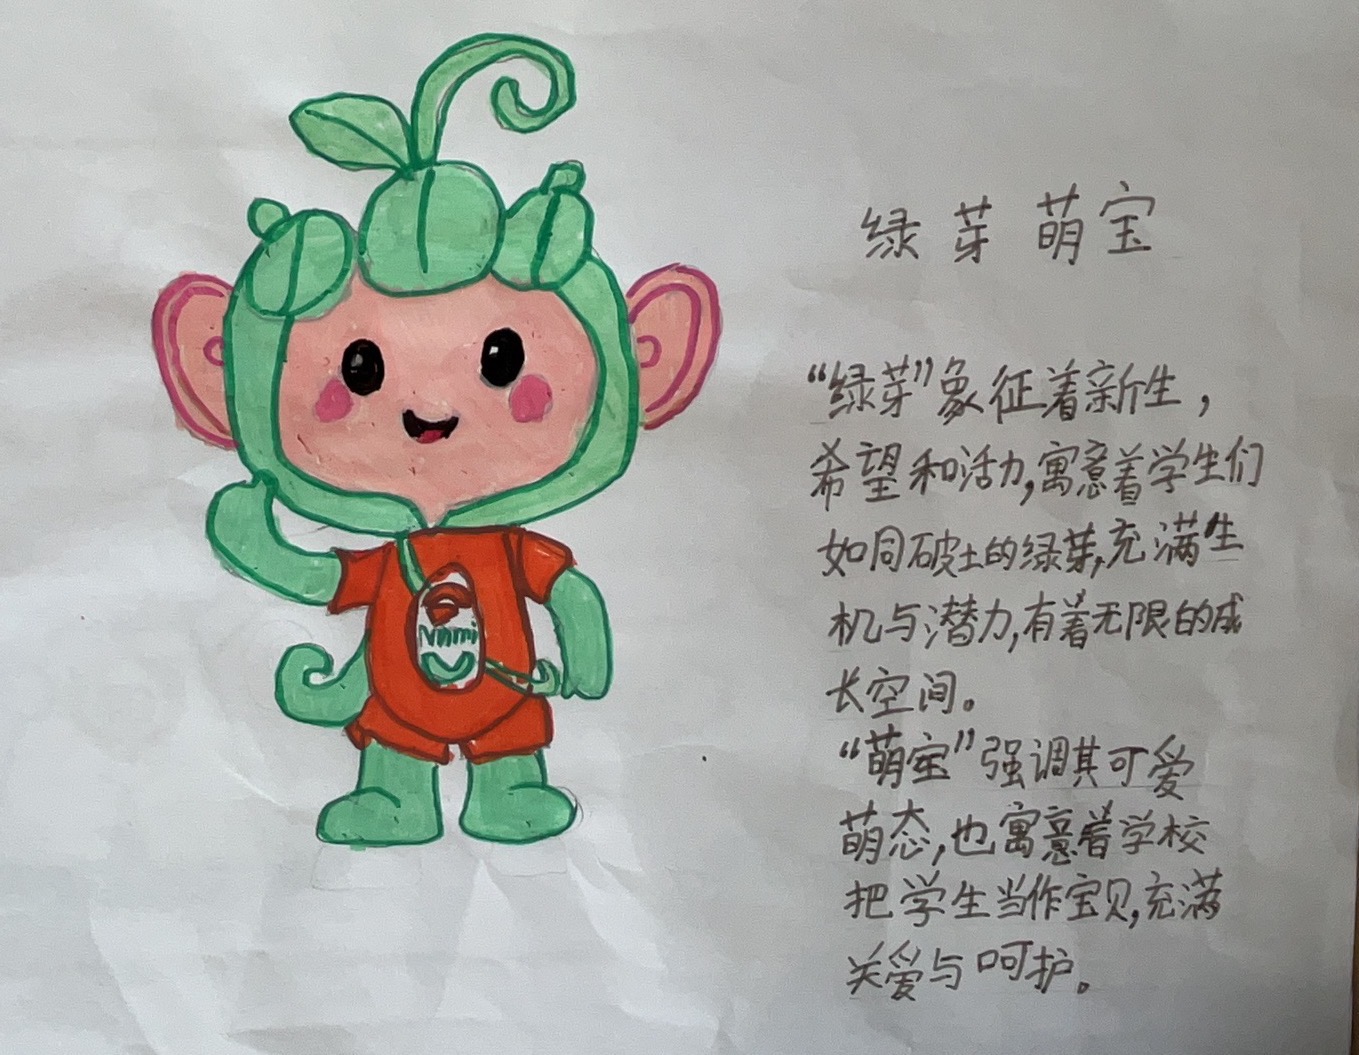 绿芽萌宝
“绿芽”象征着新生，
希望和活力,寓意着学生们
如同破土的绿芽,充满生
机与潜力,有着无限的成
长空间。
“萌宝”强调其可爱
萌态,也寓意着学校
把学生当作宝贝,充满
关爱与呵护。